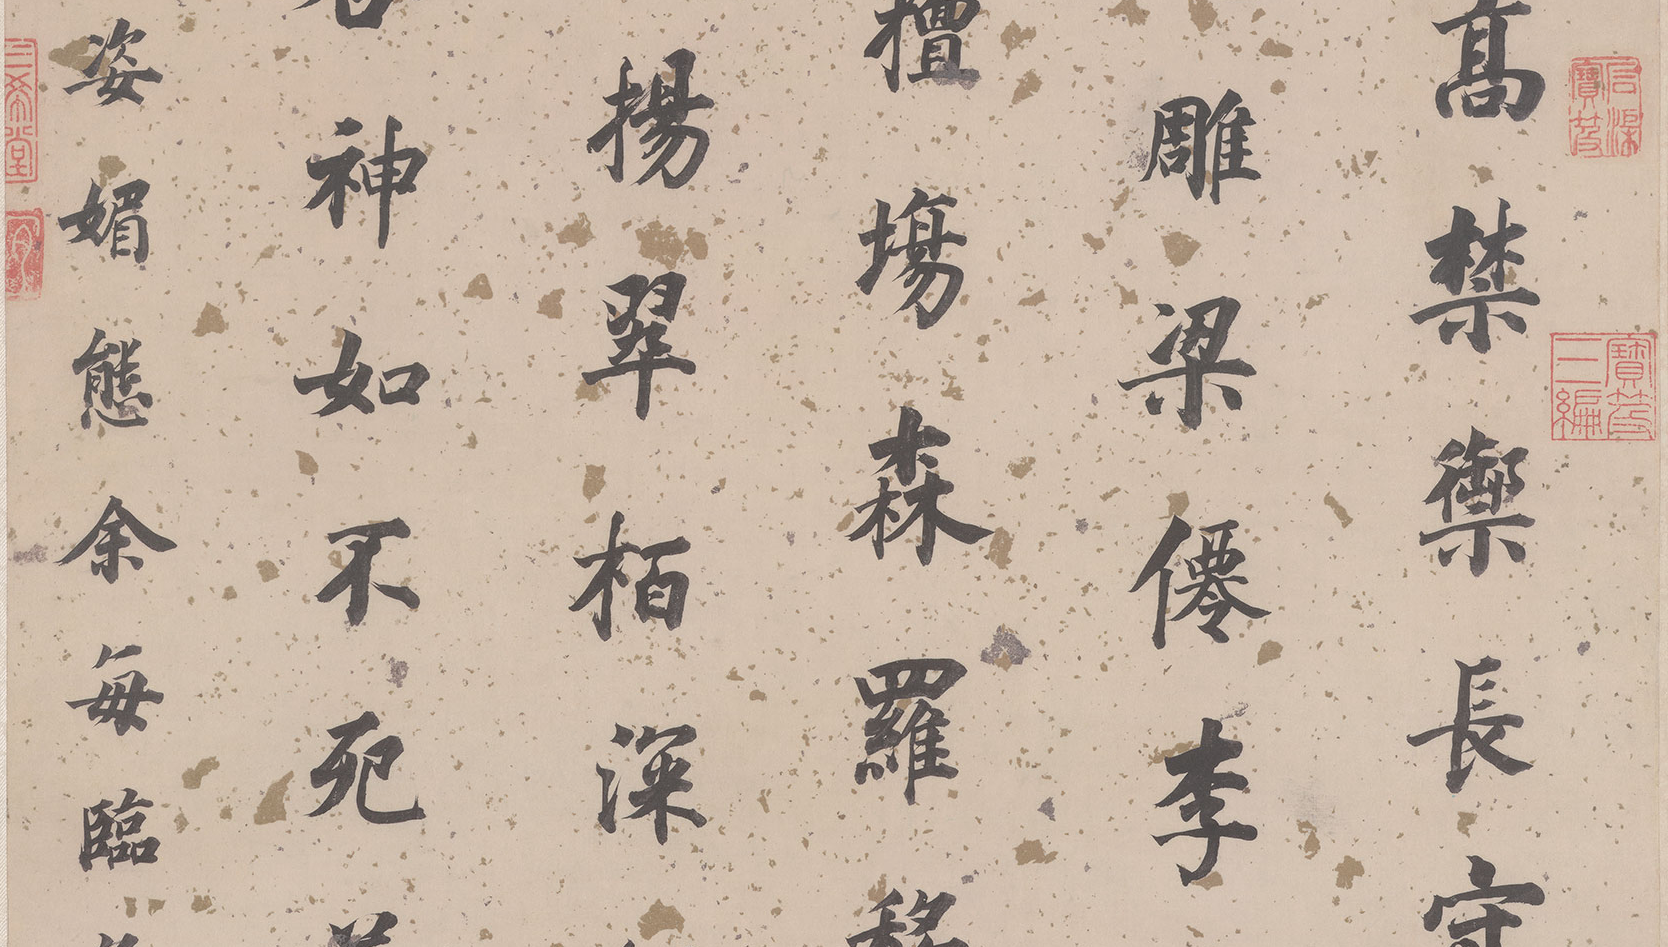 高禁禦長守
雕梁僊李
擅塲森羅移
揚翠栢深
神如不死
姿媚態余每臨
寶笈三編
三希堂